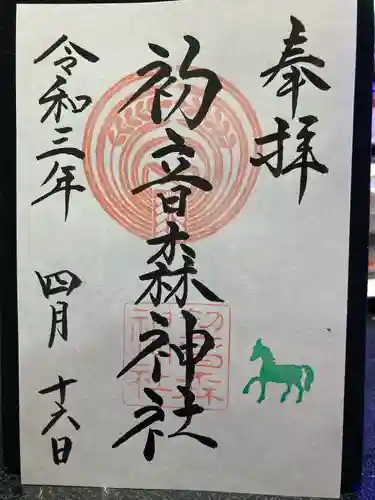 奉拝
初音森神社
令和三年 四月 十六日
初音森
神社